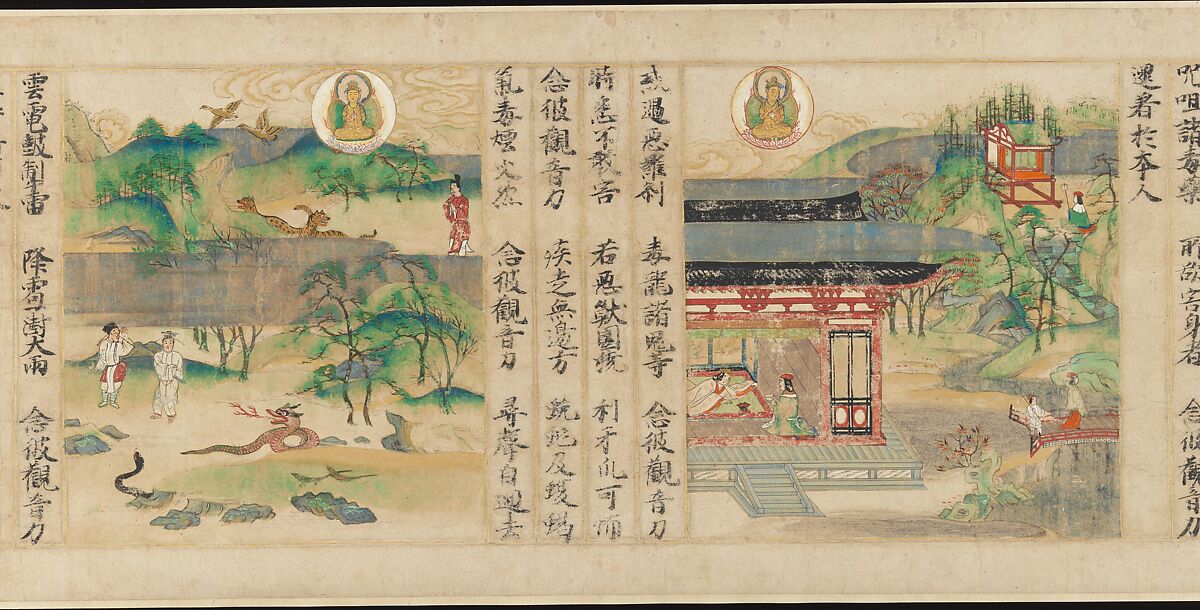 呪咀諸毒藥 所欲害身者 念彼觀音力
還著於本人
或遇惡羅刹 毒龍諸鬼等 念彼觀音力
時悉不敢害 若惡獸圍繞 利牙爪可怖
念彼觀音力 疾走無邊方 蚖虵及蝮蝎
氣毒煙火然 念彼觀音力 尋聲自迴去
雲電皷制雷 降雹澍大雨 念彼觀音力